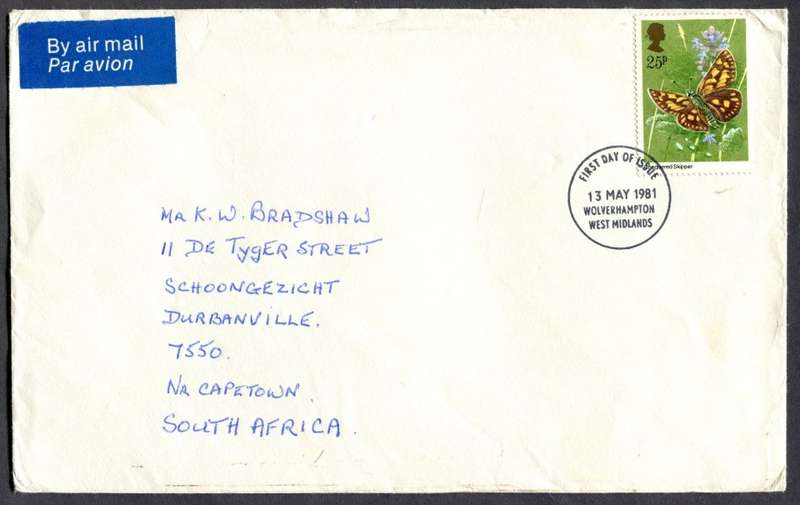 By air mail
Par avion
25P
FIRST DAY OF ISSUE
13 MAY 1981
WOLVERHAMPTON
WEST MIDLANDS
Skipper
MR K. W. BRADSHAW
11 DE TYGER STREET
SCHOONGEZICHT
DURBANVILLE.
7550.
NR CAPETOWN.
SOUTH AFRICA.